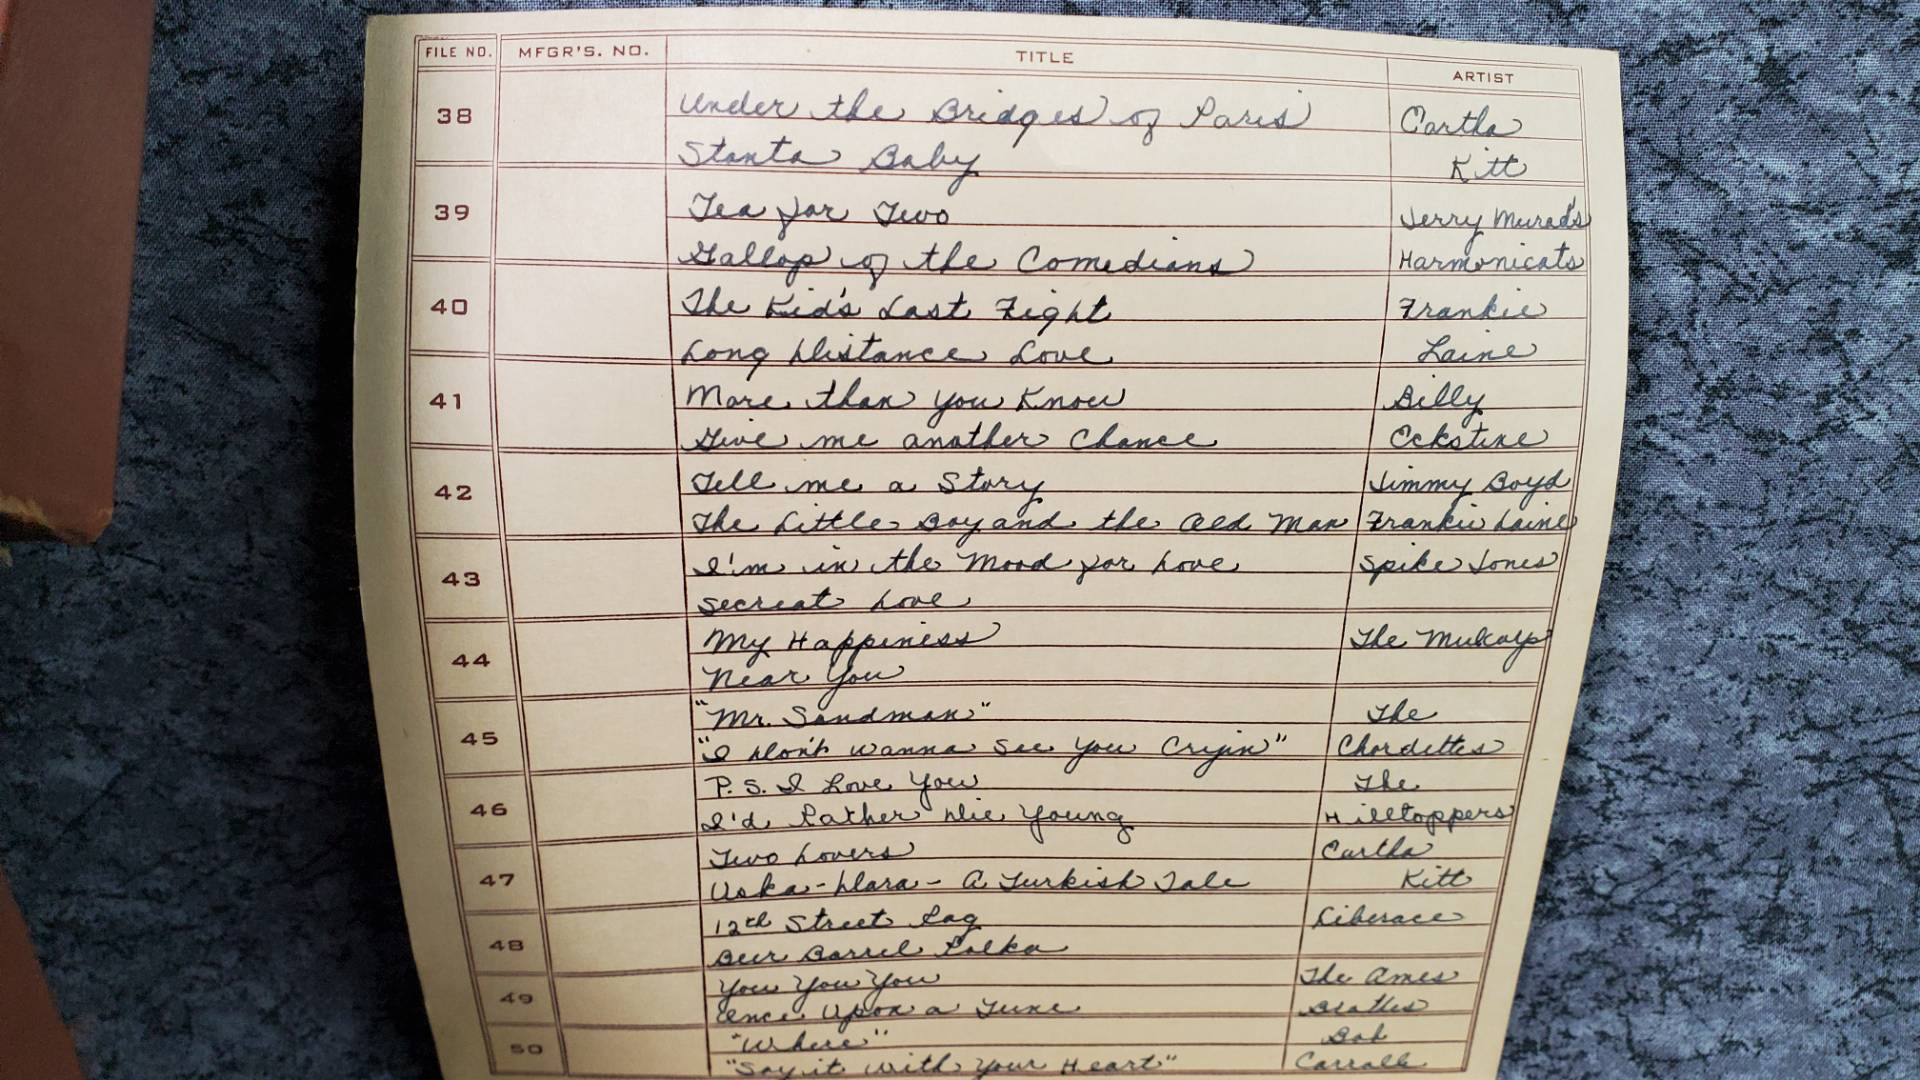 FILE NO. MFGR'S. NO. TITLE ARTIST
38 Under the Bridges of Paris Eartha
Stanta Baby Kitt
39 Tea for Two Jerry Murad's
Gallop of the Comedians Harmonicats
40 The Kid's Last Fight Frankie
Long Distance Love Laine
41 More than you Know Billy
Give me another Chance Eckstine
42 Tell me a Story Jimmy Boyd
The Little Boy and the Old Man Frankie Laine
43 I'm in the Mood for Love Spike Jones
Secreat Love
44 My Happiness The Mulcays
Near You
45 "Mr. Sandman" The
"I Don't wanna See You Cryin" Chordettes
46 P.S. I Love You The
I'd Rather Die Young Hilltoppers
47 Two Lovers Eartha
Uska-Dara - A Turkish Tale Kitt
48 12th Street Rag Liberace
Beer Barrel Polka
49 You You You The Ames
Once Upon a Tune Brothes
50 "Where" Bob
"Say it with Your Heart" Carroll